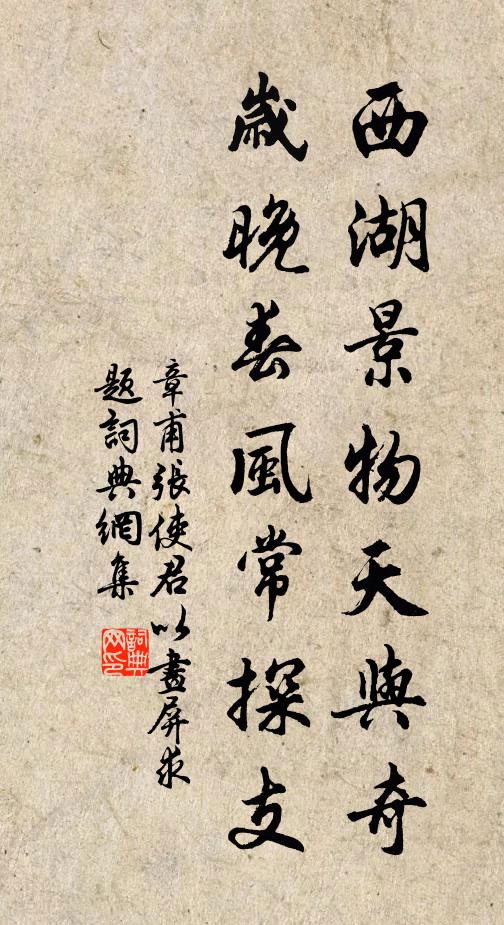 西湖景物天與奇
歲晚春風常探支
章甫張使君以畫屏求
題詞典網集
詞典網印